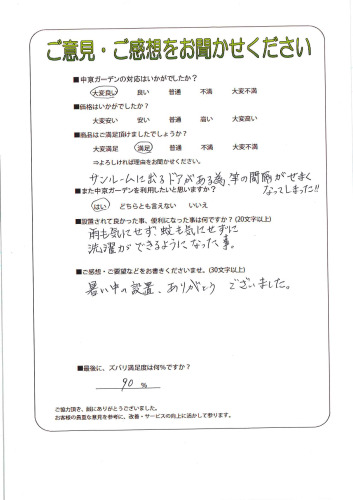 ご意見・ご感想をお聞かせください
■中京ガーデンの対応はいかがでしたか?
大変良い 良い 普通 不満 大変不満
■価格はいかがでしたか?
大変安い 安い 普通 高い 大変高い
■商品はご満足頂けましたでしょうか?
大変満足 満足 普通 不満 大変不満
⇒よろしければ理由をお聞かせください。
サンルームに出るドアがある為、竿の間隔がせまく
なってしまった!!
■また中京ガーデンを利用したいと思いますか?
はい どちらとも言えない いいえ
■設置されて良かった事、便利になった事は何ですか?(20文字以上)
雨も気にせず、蚊も気にせずに
洗濯ができるようになった事。
■ご感想・ご要望などをお書きくださいませ。(30文字以上)
暑い中の設置、ありがとう ございました。
■最後に、ズバリ満足度は何%ですか?
90 %
ご協力頂き、誠にありがとうございました。
お客様の貴重な意見を参考に、改善・サービスの向上に活かして参ります。